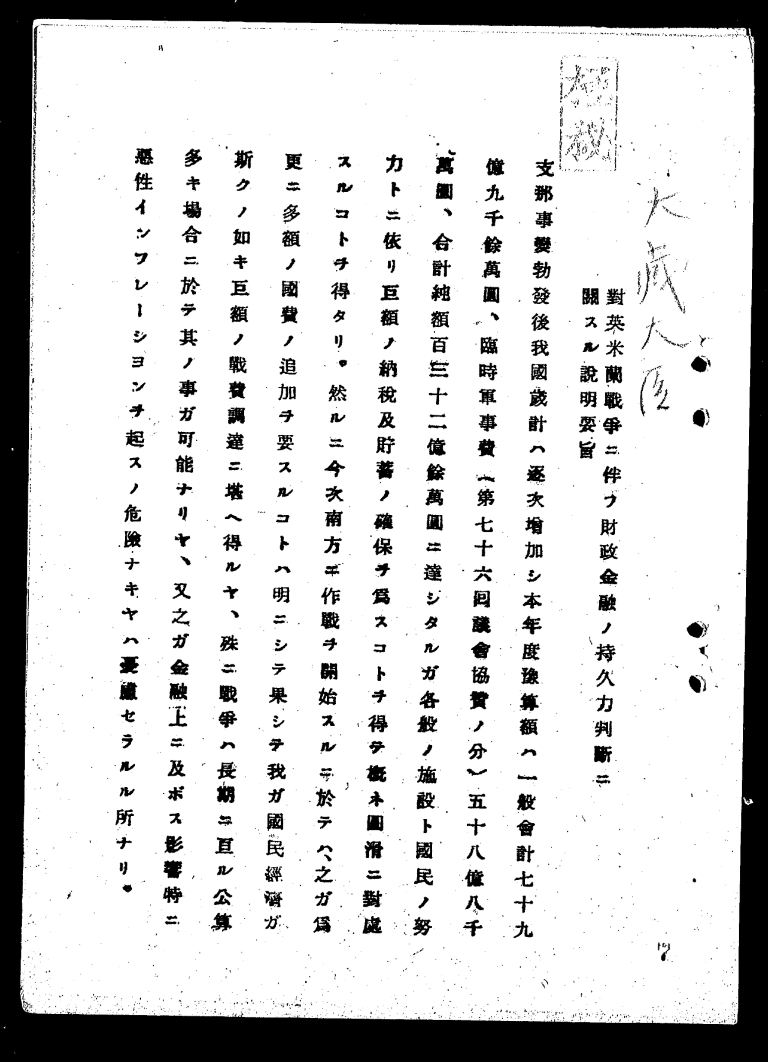 極秘
大蔵大臣
對英米蘭戰爭ニ伴フ財政金融ノ持久力判斷ニ
關スル說明要旨
支那事變勃發後我國歲計ハ逐次增加シ本年度豫算額ハ一般會計七十九
億九千餘萬圓、臨時軍事費（第七十六回議會協贊ノ分）五十八億八千
萬圓、合計純額百三十二億餘萬圓ニ達シタルガ各般ノ施設ト國民ノ努
力トニ依リ巨額ノ納稅及貯蓄ノ確保ヲ爲スコトヲ得テ槪ネ圓滑ニ對處
スルコトヲ得タリ。然ルニ今次南方ニ作戰ヲ開始スルニ於テハ、之ガ爲
更ニ多額ノ國費ノ追加ヲ要スルコトハ明ニシテ果シテ我ガ國民經濟ガ
斯クノ如キ巨額ノ戰費調達ニ堪ヘ得ルヤ、殊ニ戰爭ハ長期ニ亘ル公算
多キ場合ニ於テ其ノ事ガ可能ナリヤ、又之ガ金融上ニ及ボス影響特ニ
惡性インフレーシヨンヲ起スノ危險ナキヤハ憂慮セラルル所ナリ。